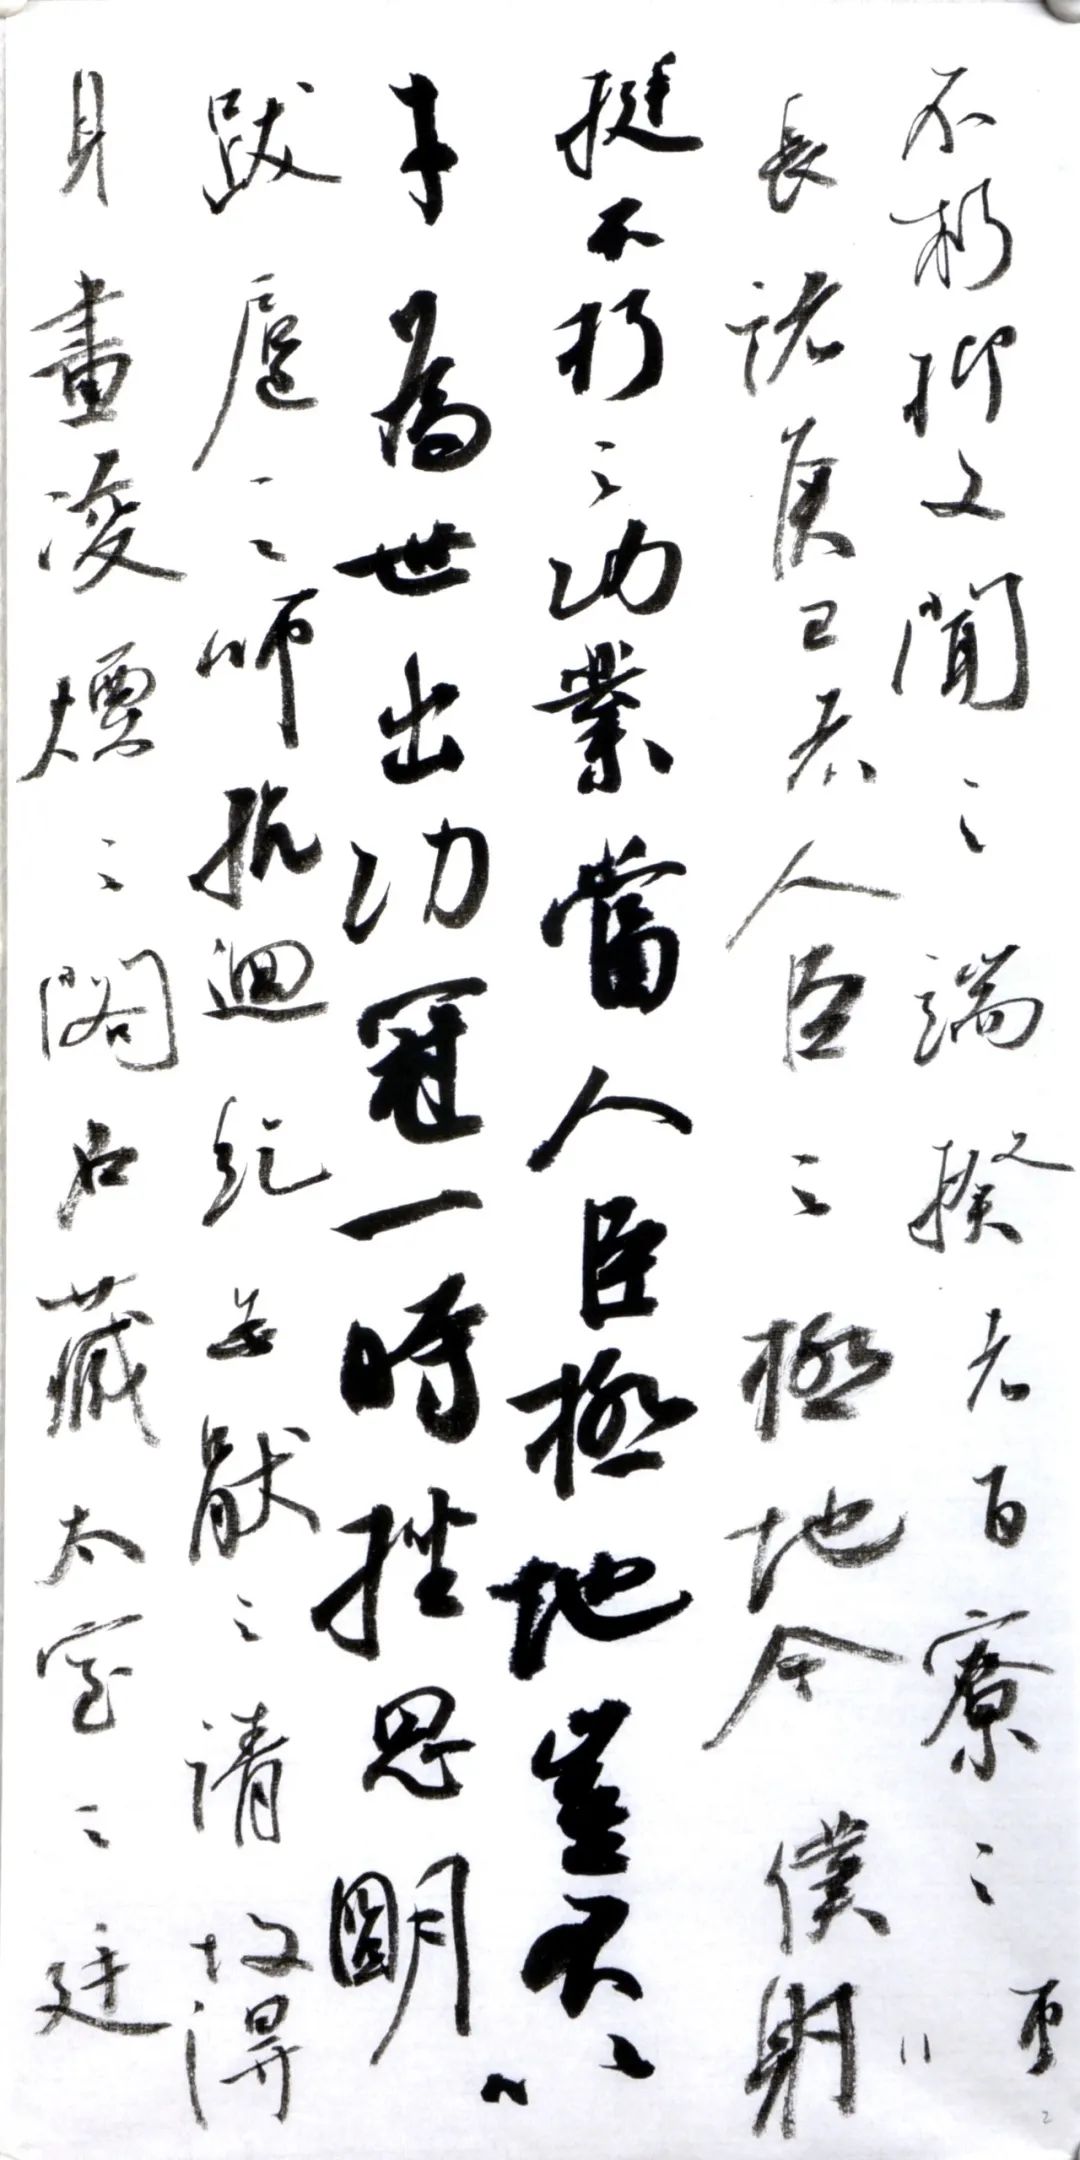 不朽抑又聞之端揆者百寮之師
長諸侯王者人臣之極地今僕射
挺不朽之功業當人臣極地豈不
才為世出功冠一時挫思明
跋扈之師抗迴紇無猒之請故得
身畫凌煙之閣名藏太室之廷